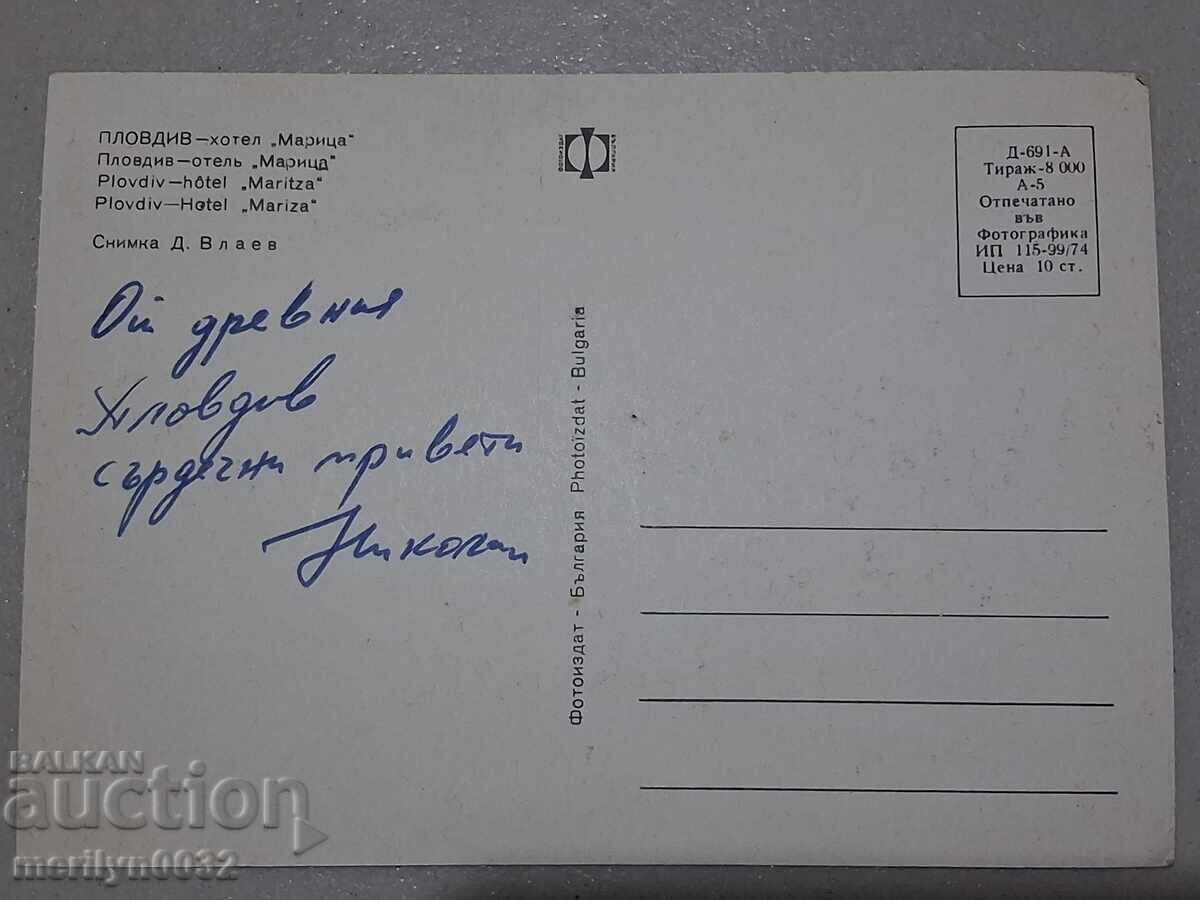 ПЛОВДИВ—хотел „Марица"
Пловдив—отель „Марица"
Plovdiv—hôtel „Maritza"
Plovdiv—Hotel „Mariza"
Снимка Д. Влаев
От древния
Пловдив
сърдечни привети
Николай
Фотоиздат - България Photoizdat - Bulgaria
Д-691-А
Тираж-8 000
А-5
Отпечатано
във
Фотографика
ИП 115-99/74
Цена 10 ст.
BALKAN
auction
merilyn0032